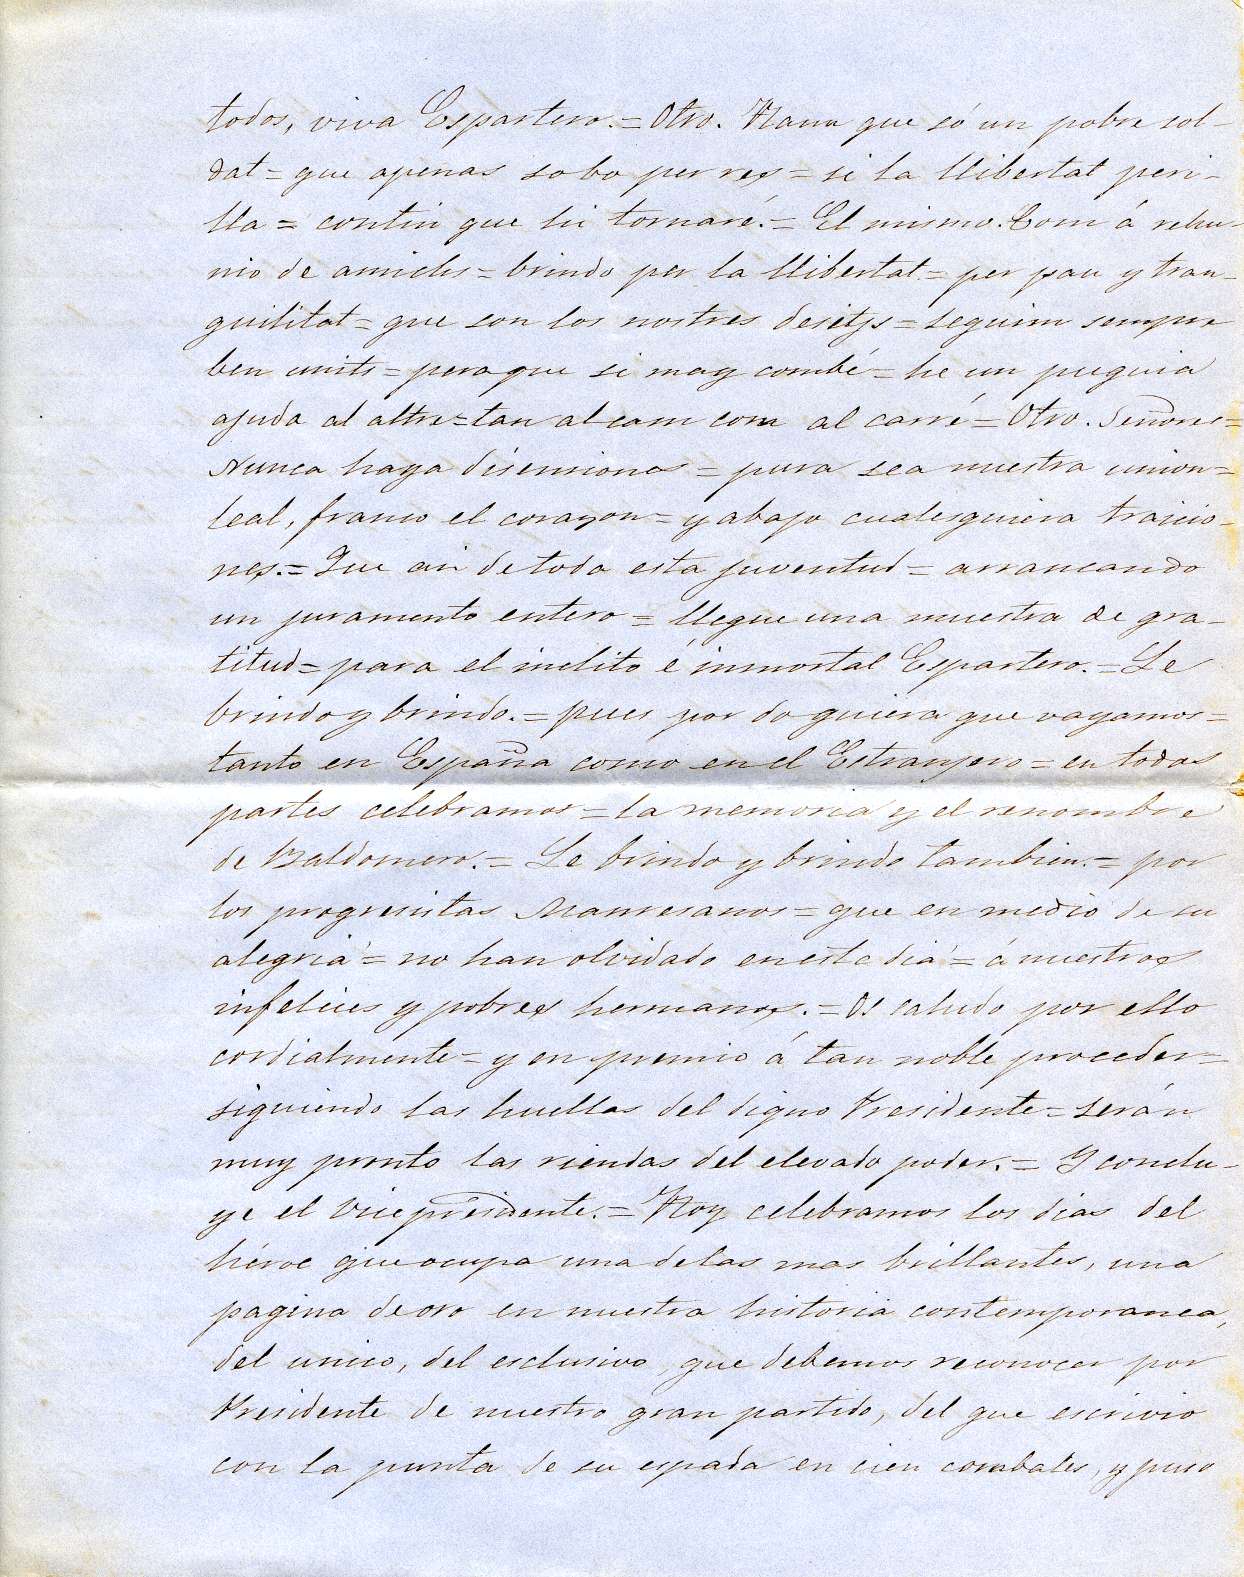 todos, viva Espartero.= Otro. Noanu que só un pobre sol-
dat = que apenas sabo per res = si la llibertat peri-
lla = contin que hi tornaré.= El mismo. Com á rehu-
nio de amichs = brindo per la llibertat = per pau y tran-
quilitat = que son los nostres desitjs = seguim sempre
ben units = peraque si may combé = he un puguia
ajuda al altre = tan al cam com al carré = Otro. Señores =
Nunca haya disensiones = pura sea nuestra union =
leal, franco el corazon = y abajo cualesquiera traicio-
nes.= Que asi de toda esta juventud = arrancando
un juramento entero = llegue una muestra de gra-
titud = para el inclito é inmortal Espartero.= Le
brindo y brindo.= pues por do quiera que vayamos =
tanto en España como en el Estranjero = en todas
partes celebramos = la memoria y el renombre
de Baldomero.= Le brindo y brindo tambien.= por
los progresistas Manresanos = que en medio de su
alegriá = no han olvidado en este diá = á nuestros
infelices y pobres hermanos.= Os saludo por ello
cordialmente = y en premio á tan noble proceder =
siguiendo las huellas del digno Presidente = serán
muy pronto las riendas del elevado poder.= Y conclu-
ye el Vicepresidente.= Hoy celebramos los dias del
héroe que ocupa una de las mas brillantes, una
pagina de oro en nuestra historia contemporanea,
del unico, del esclusivo que debemos reconocer por
Presidente de nuestro gran partido, del que escrivio
con la punta de su espada en cien combates, y puso